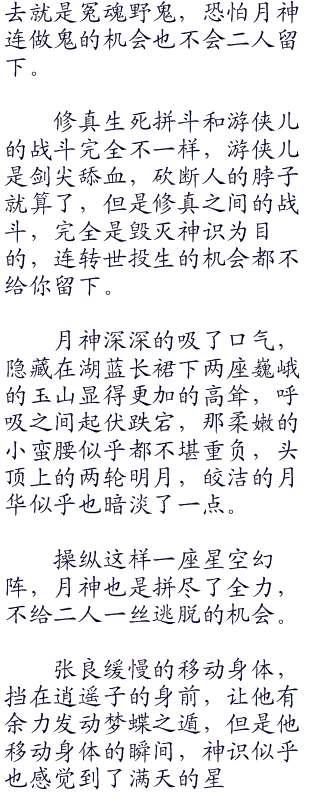 去就是冤魂野鬼，恐怕月神
连做鬼的机会也不会二人留
下。
修真生死拼斗和游侠儿
的战斗完全不一样，游侠儿
是剑尖舔血，砍断人的脖子
就算了，但是修真之间的战
斗，完全是毁灭神识为目
的，连转世投生的机会都不
给你留下。
月神深深的吸了口气，
隐藏在湖蓝长裙下两座巍峨
的玉山显得更加的高耸，呼
吸之间起伏跌宕，那柔嫩的
小蛮腰似乎都不堪重负，头
顶上的两轮明月，皎洁的月
华似乎也暗淡了一点。
操纵这样一座星空幻
阵，月神也是拼尽了全力，
不给二人一丝逃脱的机会。
张良缓慢的移动身体，
挡在逍遥子的身前，让他有
余力发动梦蝶之遁，但是他
移动身体的瞬间，神识似乎
也感觉到了满天的星